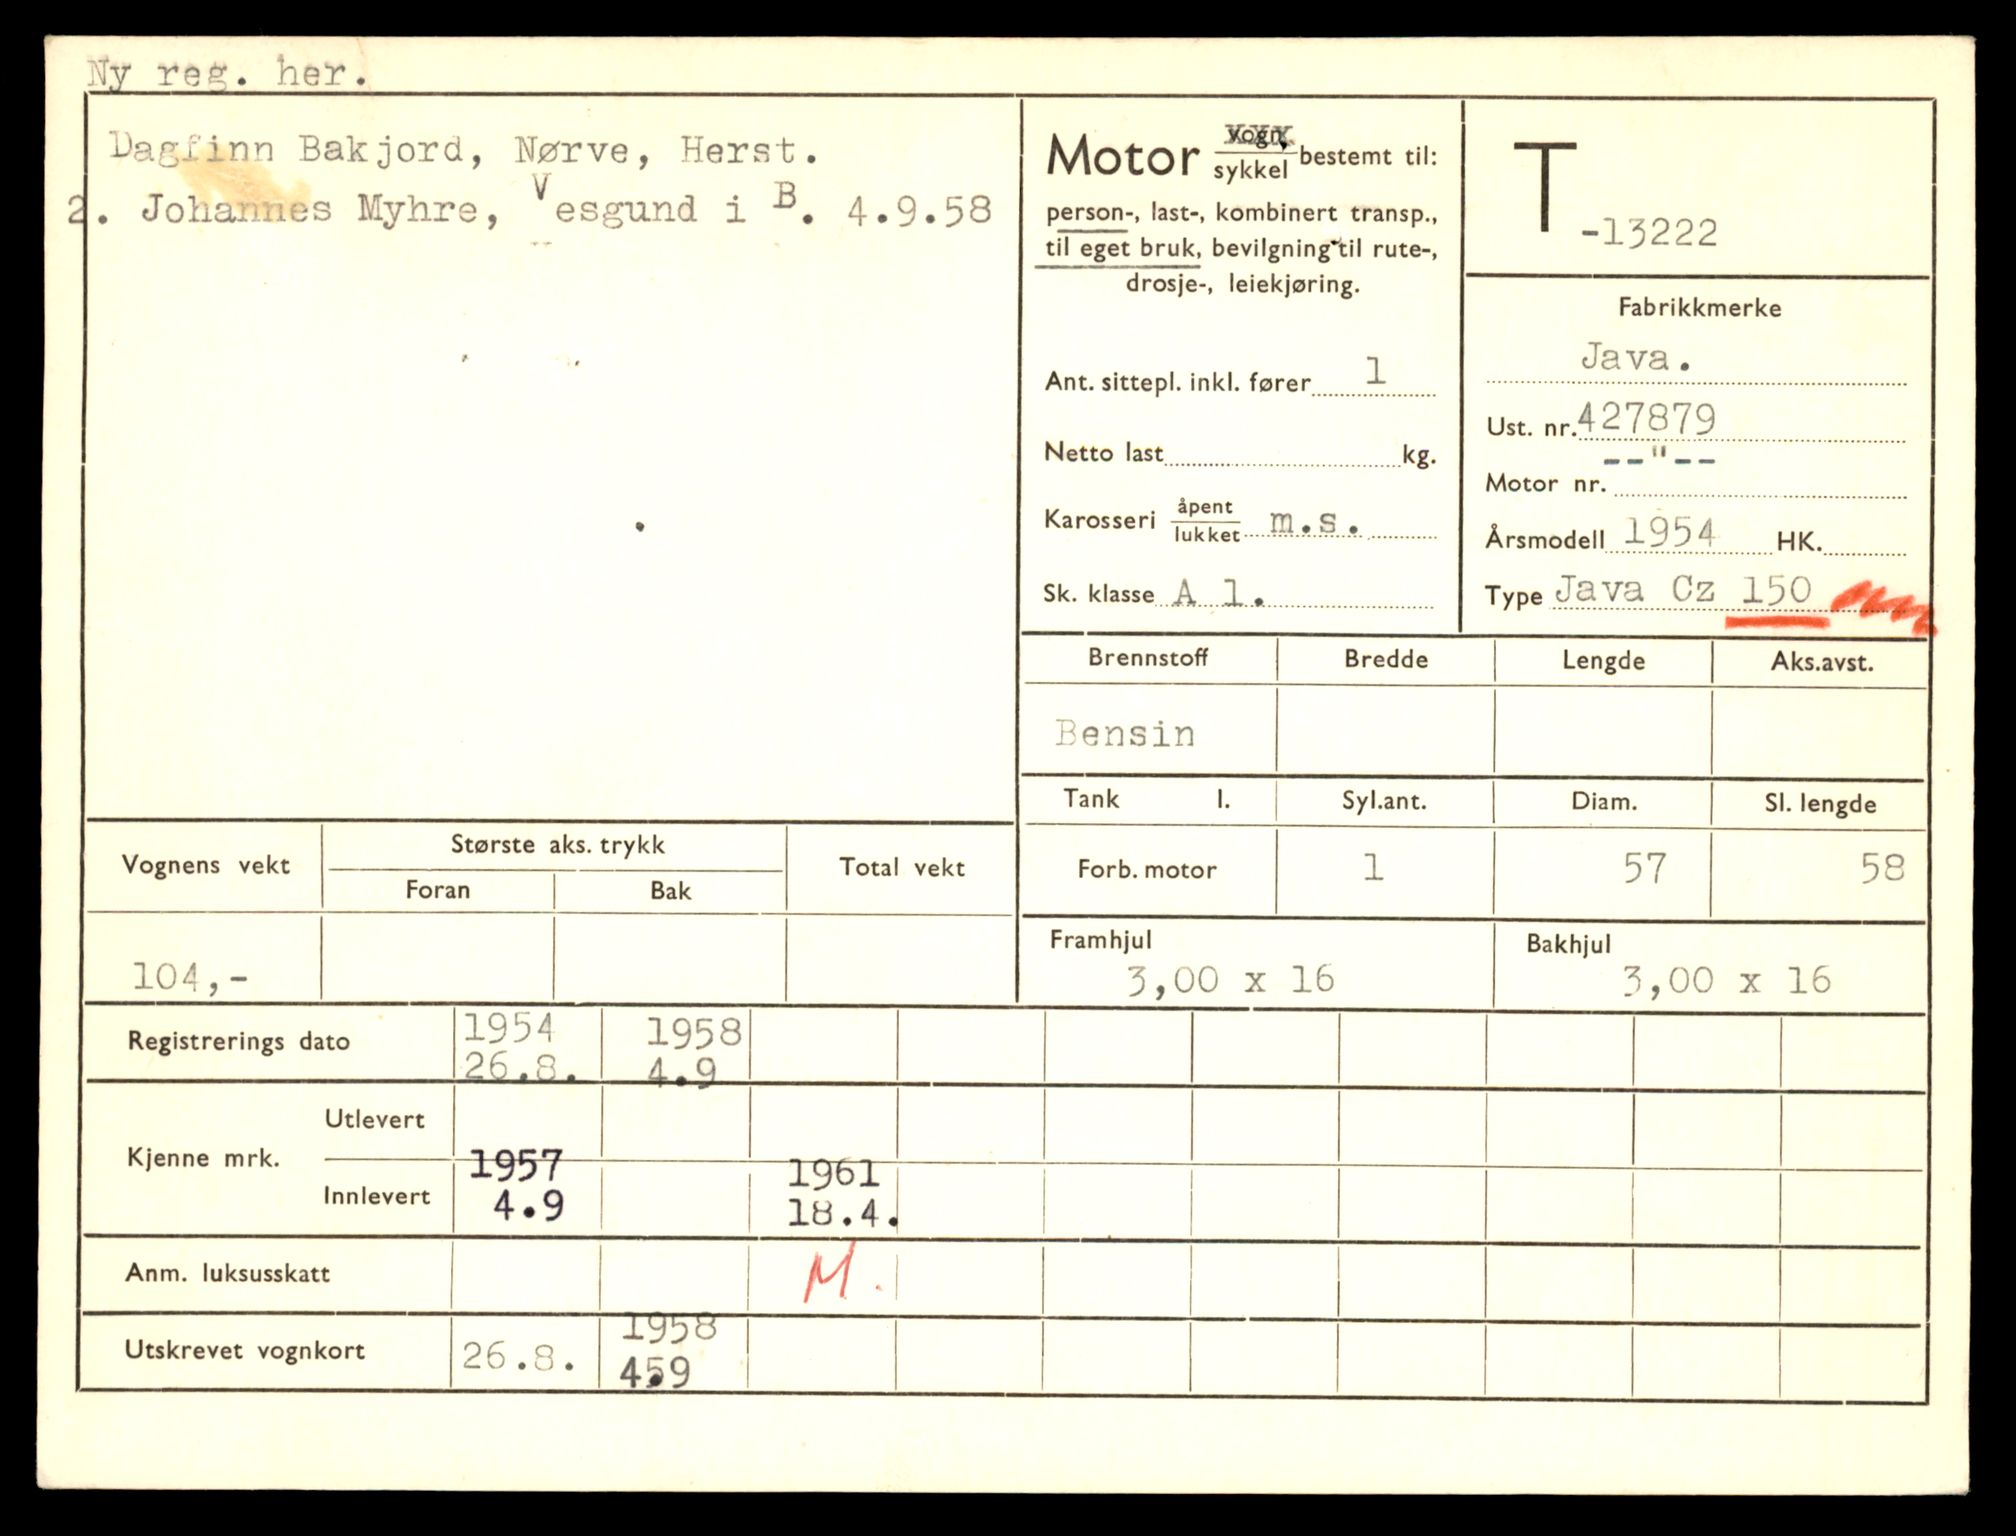 Ny reg. her.
Dagfinn Bakjord, Nørve, Herst.
2. Johannes Myhre, Vesgund i B. 4.9.58
Motor vogn/sykkel bestemt til:
person-, last-, kombinert transp.,
til eget bruk, bevilgning til rute-,
drosje-, leiekjøring.
Ant. sittepl. inkl. fører 1
Netto last kg.
Karosseri åpent/lukket m.s.
Sk. klasse A 1.
T -13222
Fabrikkmerke
Java.
Ust. nr. 427879
Motor nr. --"--
Årsmodell 1954 HK.
Type Java Cz 150
Brennstoff Bredde Lengde Aks.avst.
Bensin
Tank l. Syl.ant. Diam. Sl. lengde
Forb. motor 1 57 58
Framhjul Bakhjul
3,00 x 16 3,00 x 16
Vognens vekt Største aks. trykk Total vekt
Foran Bak
104,-
Registrerings dato 1954 1958
26.8. 4.9
Kjenne mrk. Utlevert
Innlevert 1957 1961
4.9 18.4.
Anm. luksusskatt M.
Utskrevet vognkort 26.8. 1958
4.9